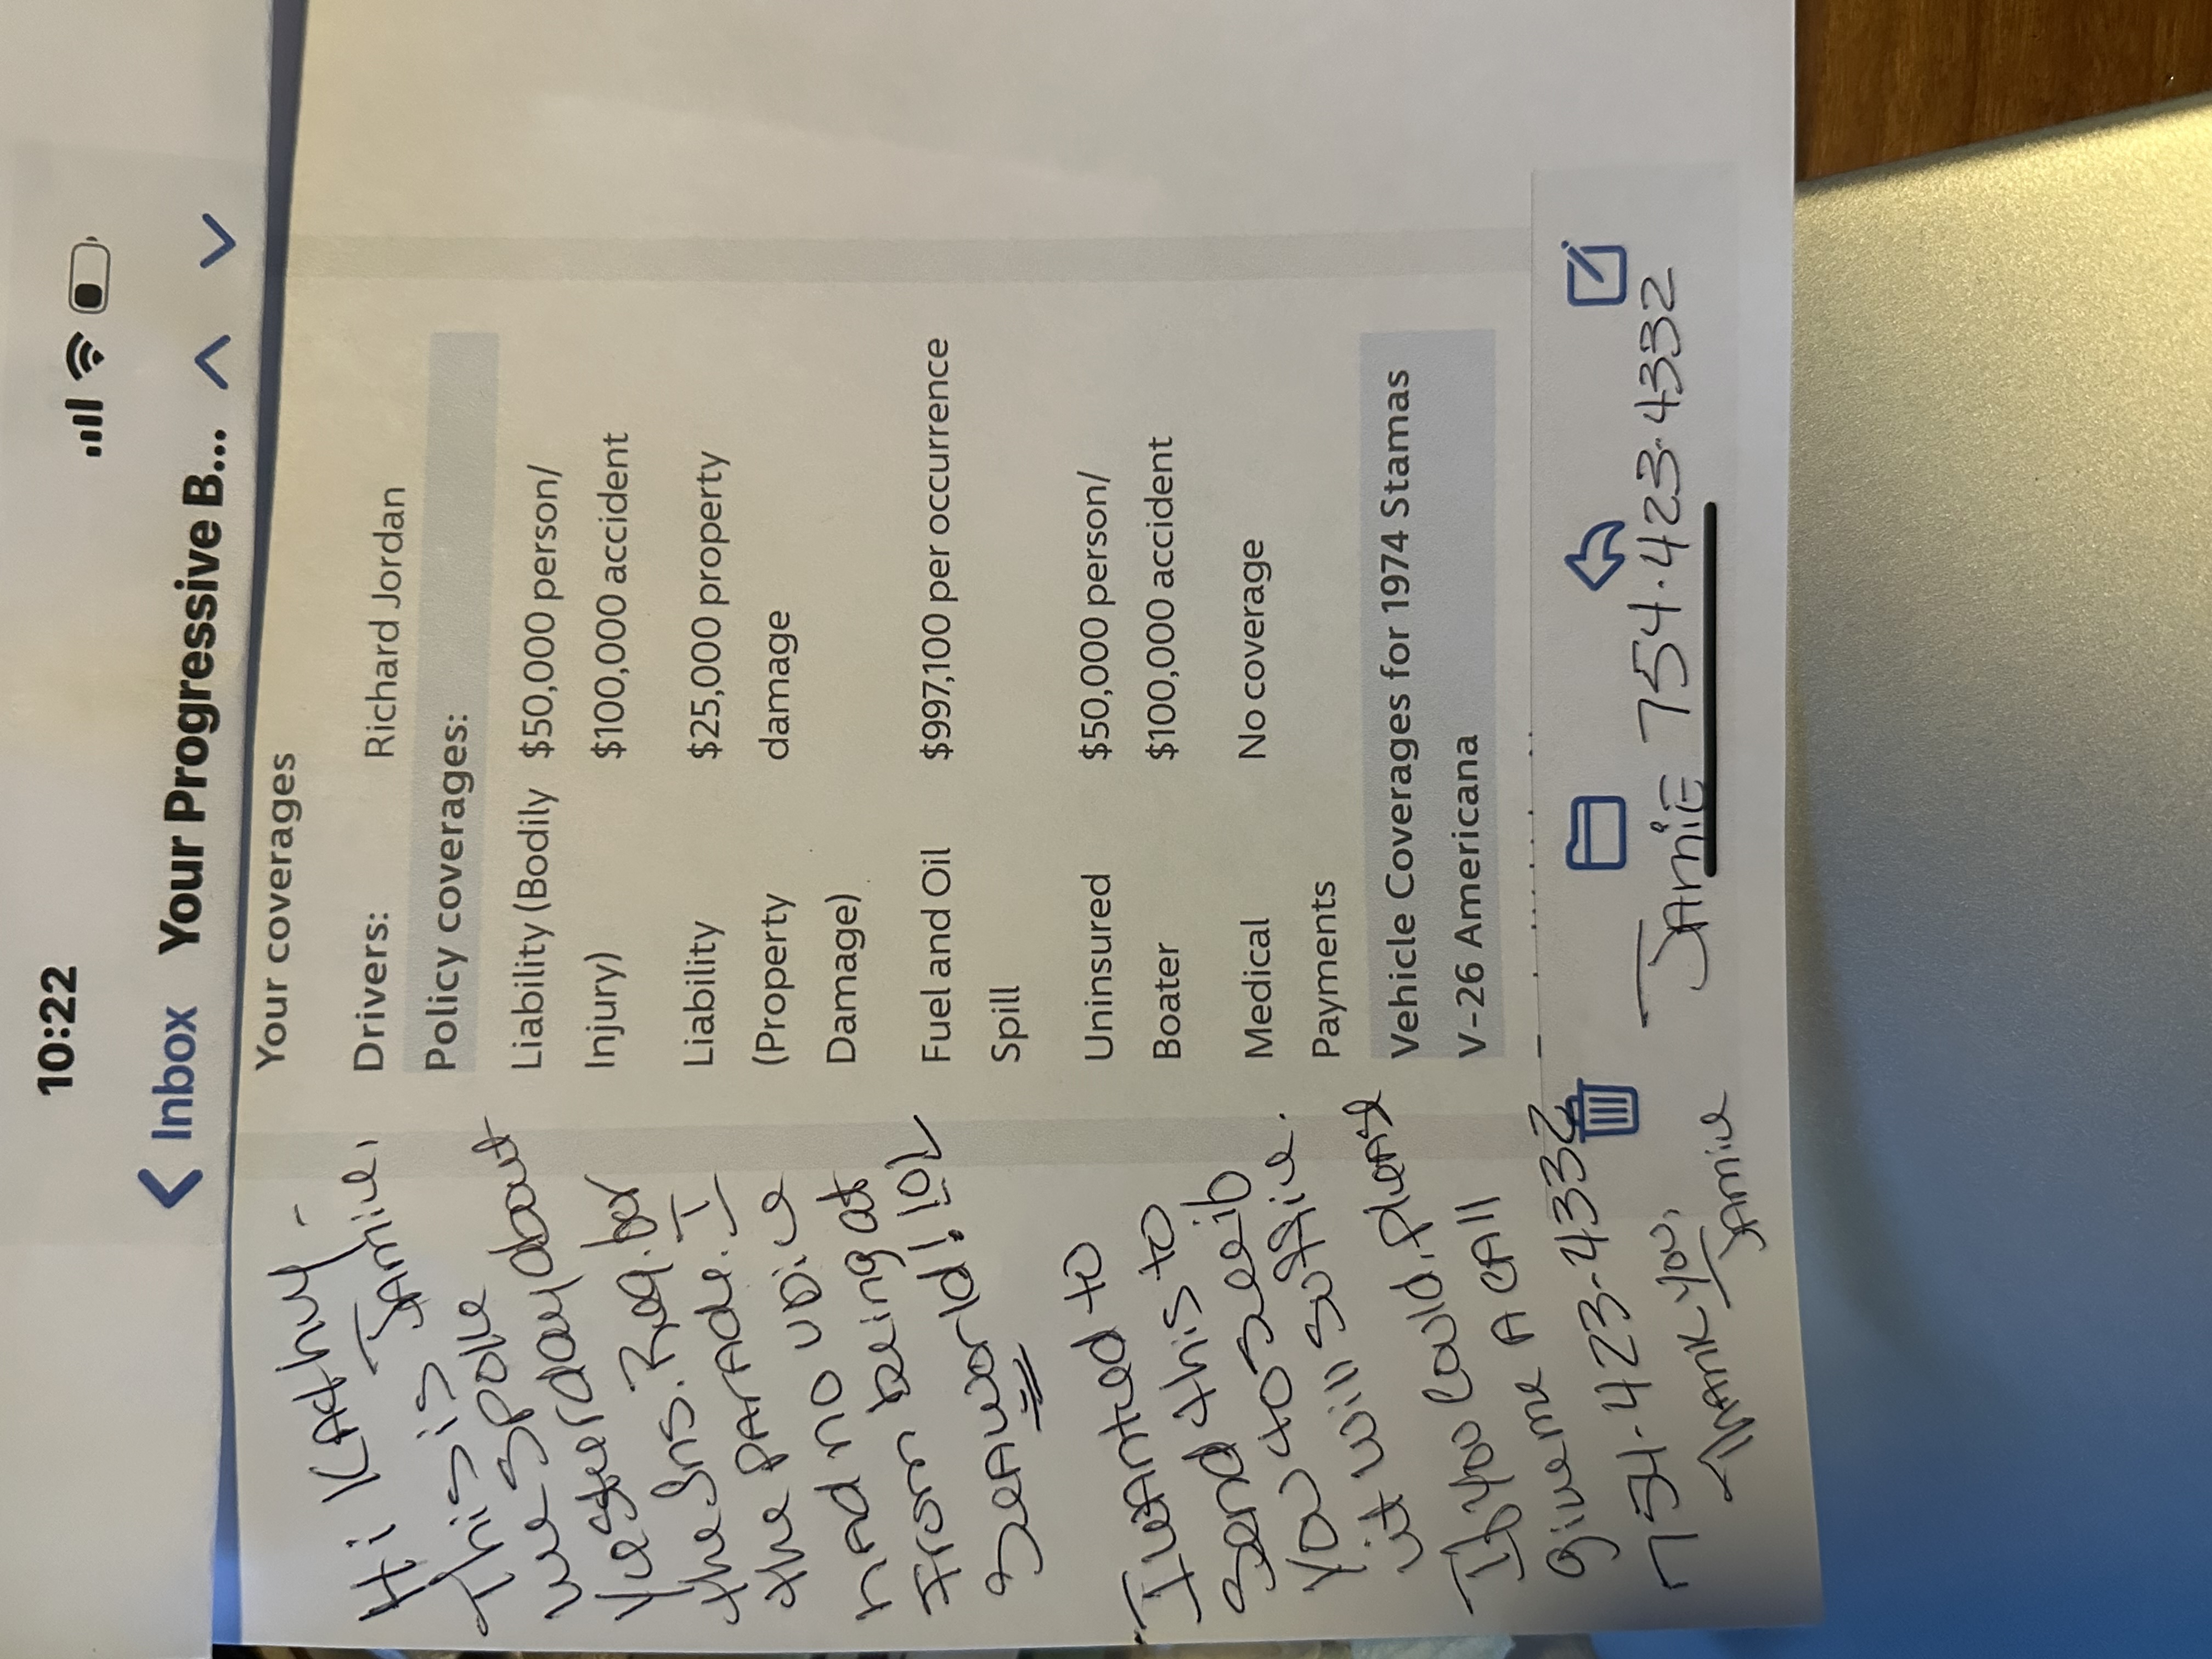 10:22
Inbox Your Progressive B...
Your coverages
Drivers: Richard Jordan
Policy coverages:
Liability (Bodily $50,000 person/
Injury) $100,000 accident
Liability $25,000 property
(Property damage
Damage)
Fuel and Oil $997,100 per occurrence
Spill
Uninsured $50,000 person/
Boater $100,000 accident
Medical No coverage
Payments
Vehicle Coverages for 1974 Stamas
V-26 Americana
JAMiE 754.423.4332
Hi KAthy -
This is JAmie,
we spoke
yesterday about
the Ins. Req. for
the parade. I
had no voice
from being at
Seaworld! lol
I wanted to
send this to
you to see ib
it will suffice.
Ib you could, please
give me A CAll
754-423-4332
Thank you,
JAmie